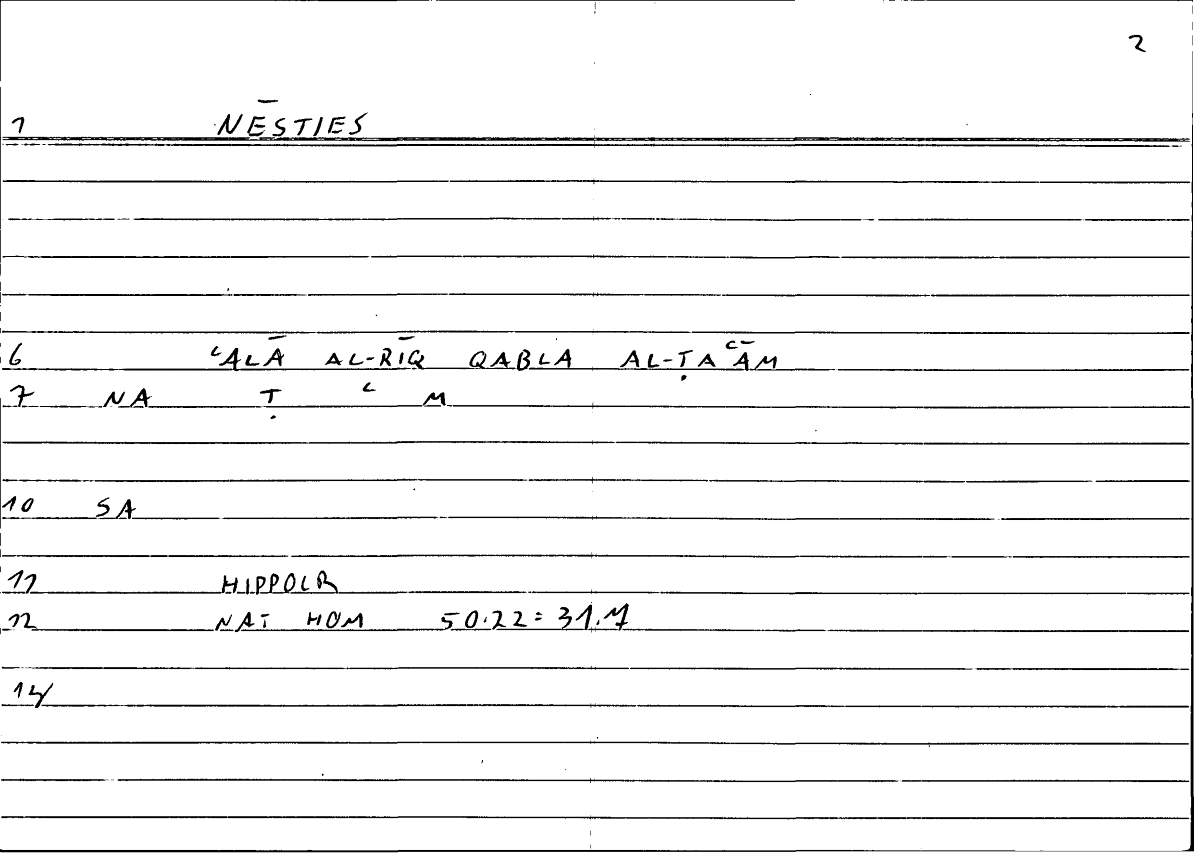 2
1 NĒSTIES
6 ʿALĀ AL-RĪQ QABLA AL-ṬAʿĀM
7 NA Ṭ ʿ M
10 SA
11 HIPPOCR
12 NAT HOM 50.22 = 31.1
14